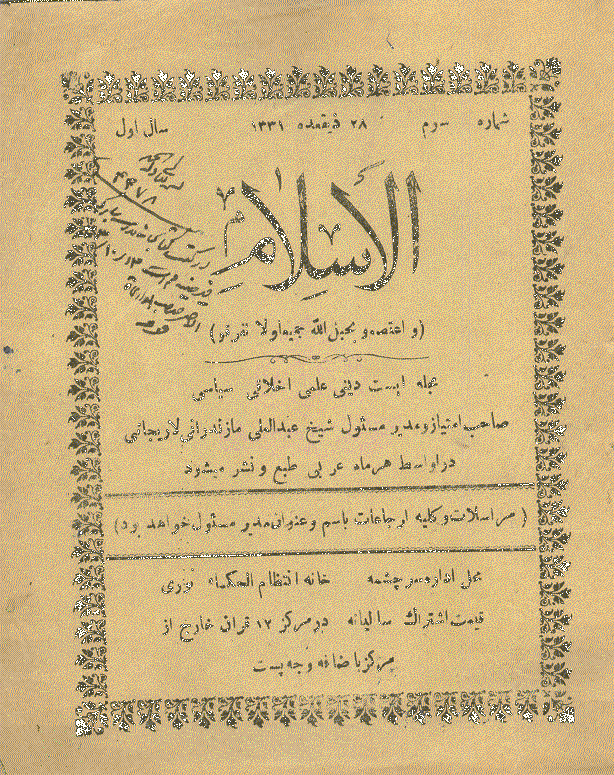 شماره سوم ۲۸ ذیقعده ۱۳۳۱ سال اول
الاسلام
(و اعتصمو بحبل الله جمیعاولا تفرقو)
مجله ایست دینی علمی اخلاقی سیاسی
صاحب امتیاز ومدیر مسئول شیخ عبدالعلی مازندرانی لاریجانی
در اواسط هر ماه عربی طبع و نشر میشود
(مراسلات و کلیه ارجاعات باسم و عنوان مدیر مسئول خواهد بود)
محل اداره سر چشمه خانه انتظام الحکماء نوری
قیمت اشتراك سالیانه در مرکز ۱۲ قران خارج از
مرکز با ضافه وجه پست
۴۹۷۸